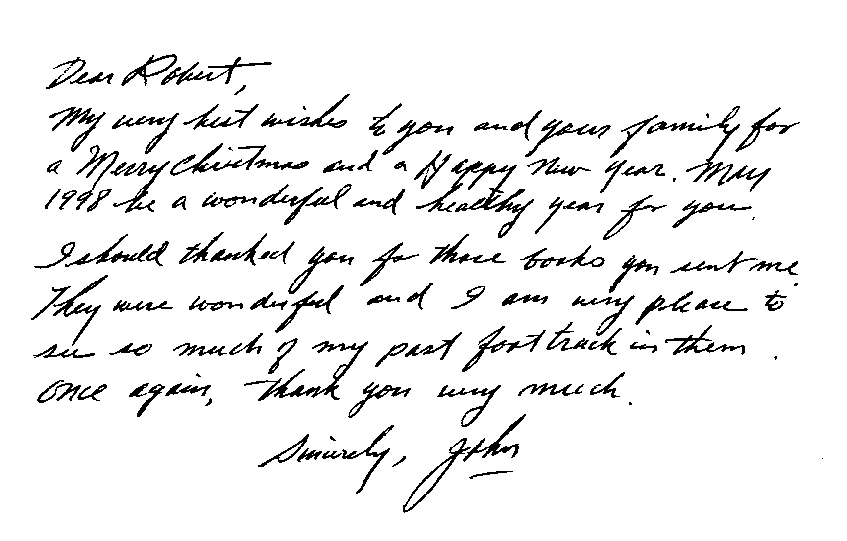 Dear Robert,
My very best wishes to you and your family for
a Merry Christmas and a Happy New Year. May
1998 be a wonderful and healthy year for you.
I should thanked you for those books you sent me.
They were wonderful and I am very please to
see so much of my past foot track in them.
Once again, thank you very much.
Sincerely, John